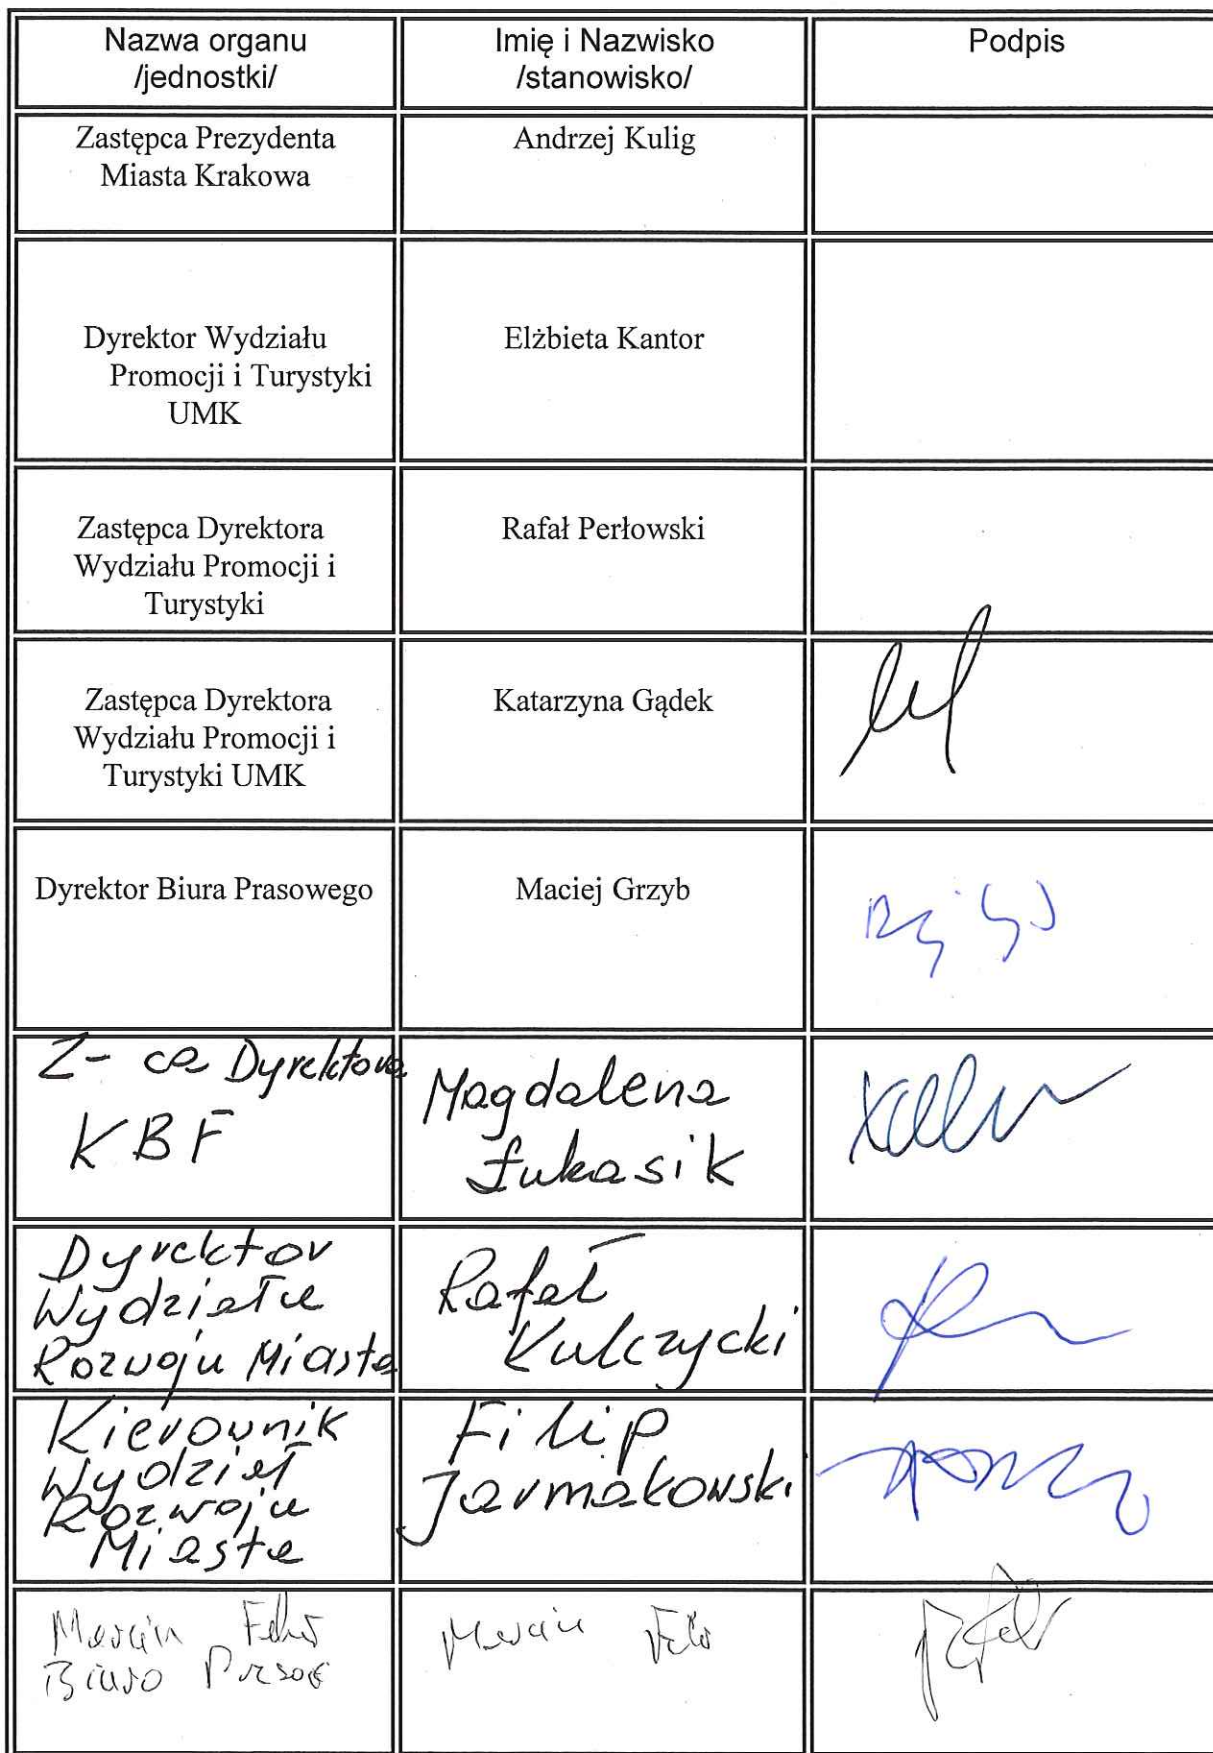 Nazwa organu
/jednostki/
Imię i Nazwisko
/stanowisko/
Podpis
Zastępca Prezydenta
Miasta Krakowa
Andrzej Kulig
Dyrektor Wydziału
Promocji i Turystyki
UMK
Elżbieta Kantor
Zastępca Dyrektora
Wydziału Promocji i
Turystyki
Rafał Perłowski
Zastępca Dyrektora
Wydziału Promocji i
Turystyki UMK
Katarzyna Gądek
Dyrektor Biura Prasowego
Maciej Grzyb
Z-ca Dyrektora
KBF
Magdalena
Łukasik
Dyrektor
Wydziału
Rozwoju Miasta
Rafał
Kulczycki
Kierownik
Wydział
Rozwoju
Miasta
Filip
Jarmakowski
Marcin
Biuro
Marcin